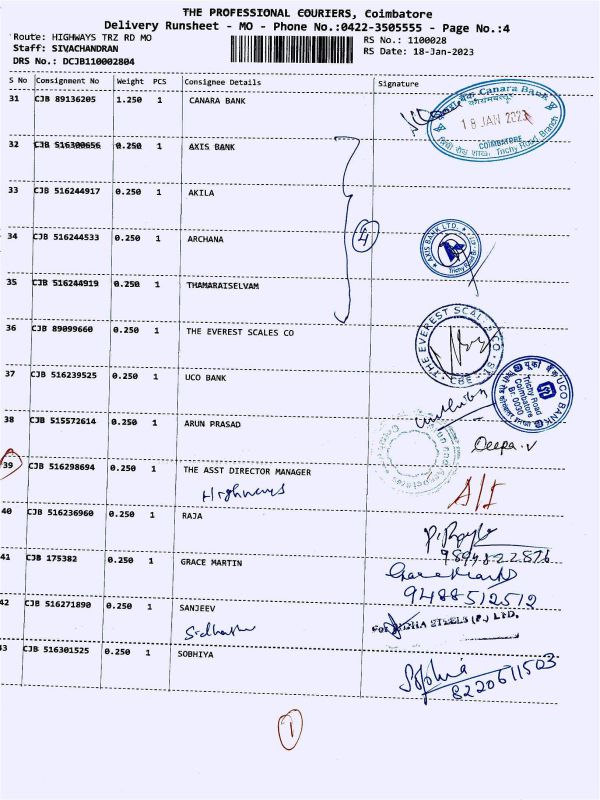 THE PROFESSIONAL COURIERS, Coimbatore
Delivery Runsheet - MO - Phone No.:0422-3505555 - Page No.:4
Route: HIGHWAYS TRZ RD MO
RS No.: 1100028
Staff: SIVACHANDRAN
RS Date: 18-Jan-2023
DRS No.: DCJB110002804
S No Consignment No Weight PCS Consignee Details Signature
31 CJB 89136205 1.250 1 CANARA BANK
Canara Bank
18 JAN 2023
COIMBATORE
Trichy Road, Branch
32 CJB 516300656 0.250 1 AXIS BANK
33 CJB 516244917 0.250 1 AKILA
4
34 CJB 516244533 0.250 1 ARCHANA
AXIS BANK LTD.
35 CJB 516244919 0.250 1 THAMARAISELVAM
36 CJB 89099660 0.250 1 THE EVEREST SCALES CO
THE EVEREST SCALES CO
CBE
37 CJB 516239525 0.250 1 UCO BANK
यूको बैंक UCO BANK
Trichy Road
Coimbatore
Br. 0030
38 CJB 515572614 0.250 1 ARUN PRASAD
Deepa.V
39 CJB 516298694 0.250 1 THE ASST DIRECTOR MANAGER
Highways
A/I
40 CJB 516236960 0.250 1 RAJA
9894822876
41 CJB 175382 0.250 1 GRACE MARTIN
9488512512
42 CJB 516271890 0.250 1 SANJEEV
STEELS (P.) LTD.
43 CJB 516301525 0.250 1 SOBHIYA
Sophia
8220611503
1